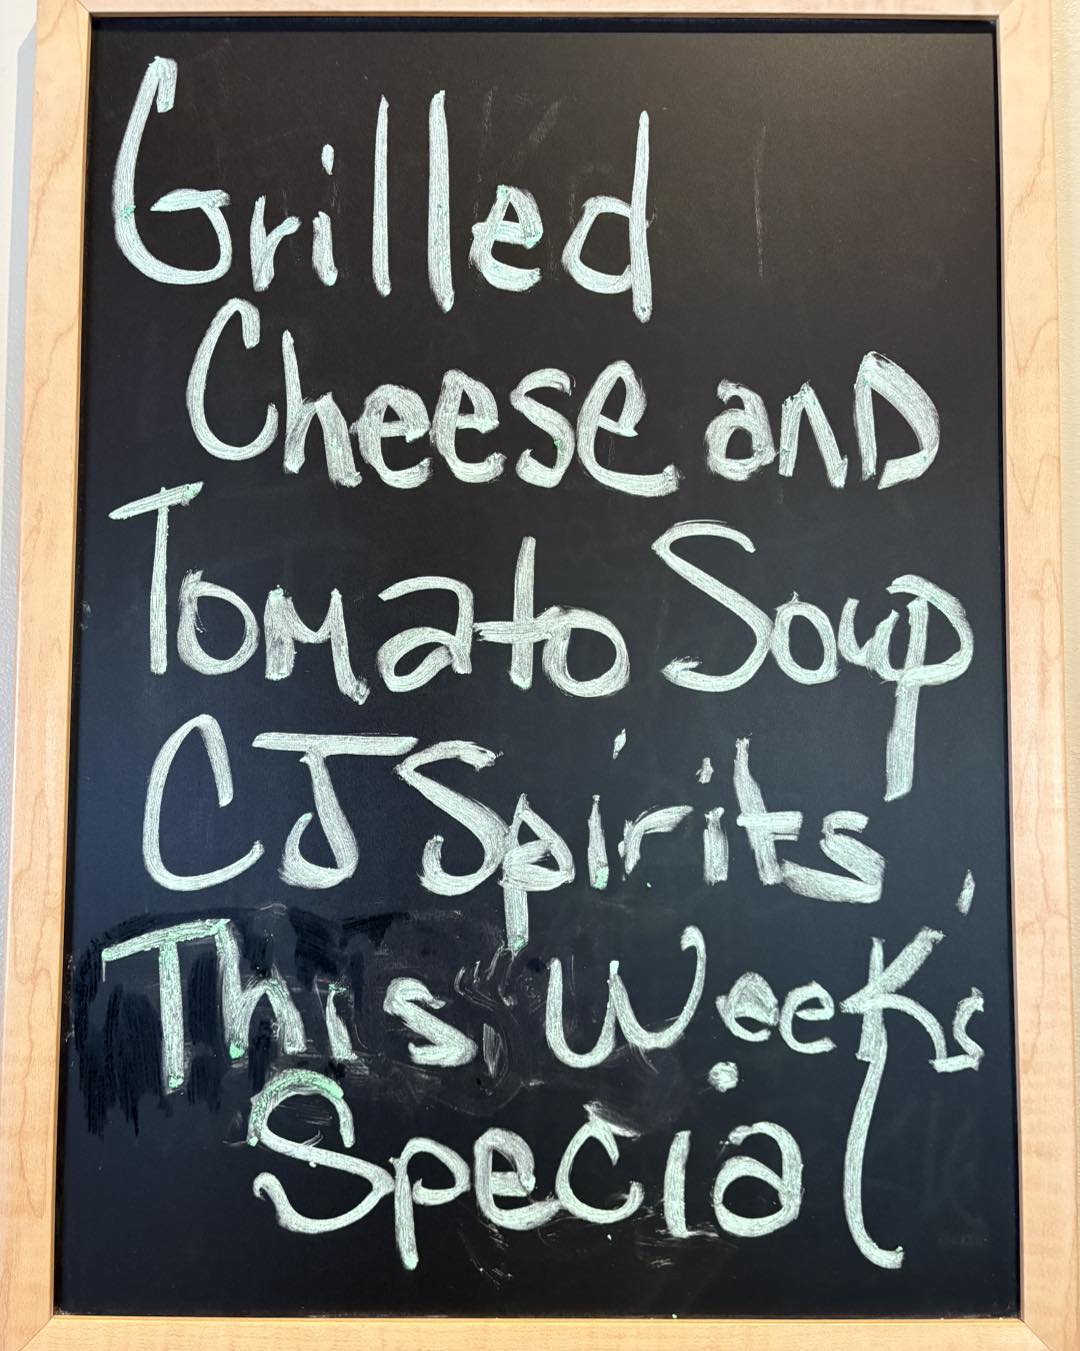 Grilled
Cheese and
Tomato Soup
CJ Spirits
This Week's
Special